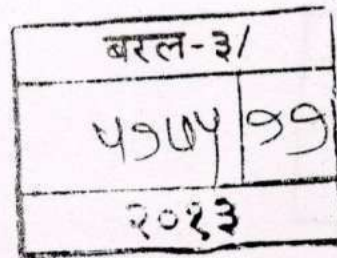 बरल-३/
५१७५ ११
२०१३